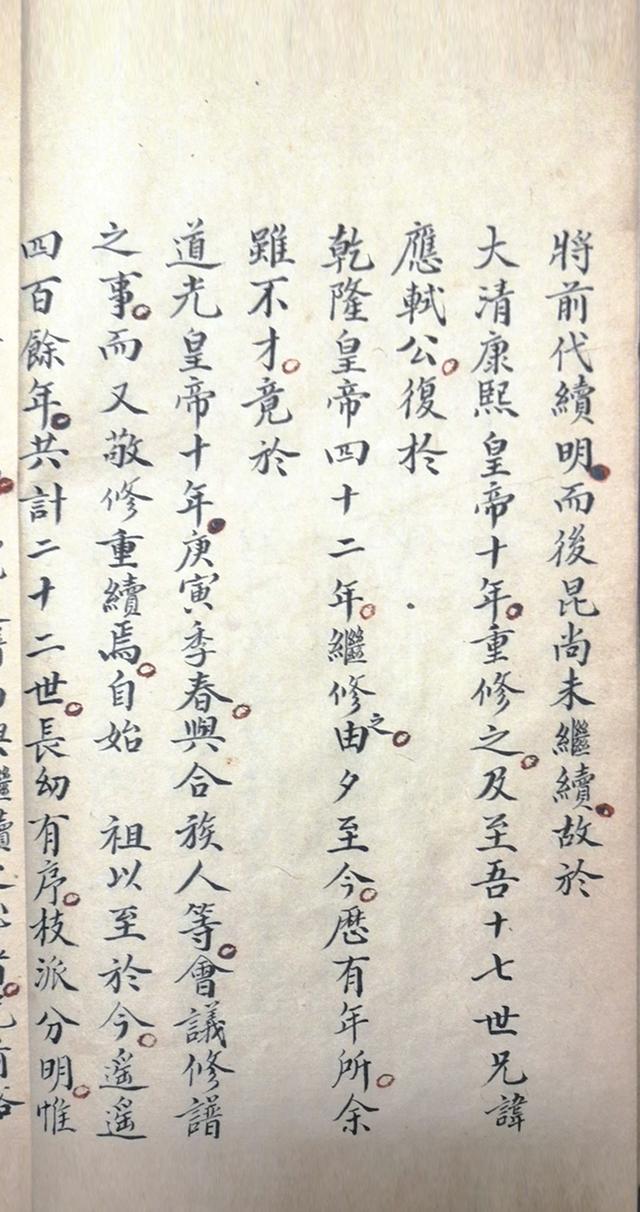 將前代續明而後昆尚未繼續故於
大清康熙皇帝十年重修之及至吾十七世兄諱
應軾公復於
乾隆皇帝四十二年繼修之由夕至今歷有年所余
雖不才竟於
道光皇帝十年庚寅季春與合族人等會議修譜
之事而又敬修重續焉自始 祖以至於今遥遥
四百餘年共計二十二世長幼有序枝派分明惟